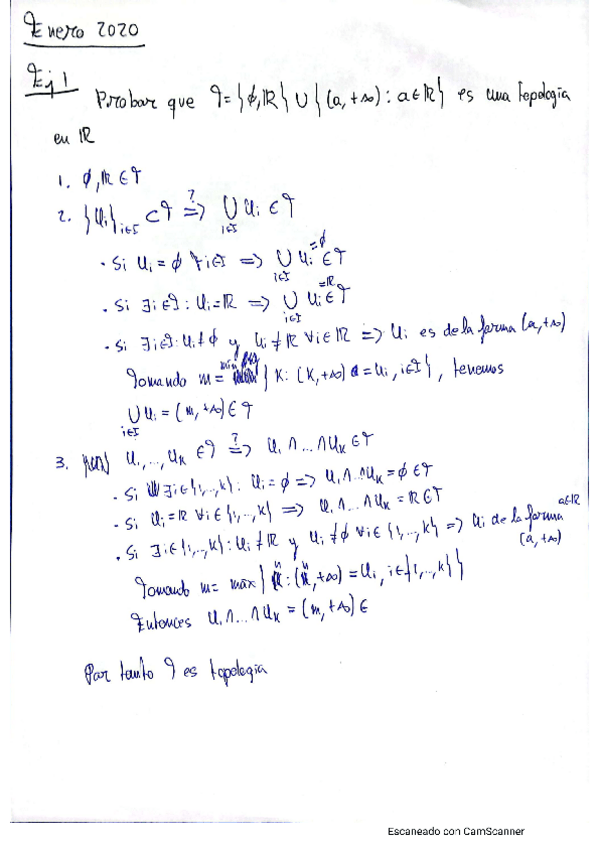 Enero 2020
Ej 1
Probar que T={∅,ℝ} ∪ {(a,+∞): a∈ℝ} es una topología
en ℝ
1. ∅,ℝ ∈ T
2. {Ui}i∈I ⊂ T ?⇒ ⋃i∈I Ui ∈ T
· Si Ui = ∅ ∀i∈I => ⋃i∈I Ui =∅ ∈ T
· Si ∃i∈I : Ui = ℝ => ⋃i∈I Ui =ℝ ∈ T
· Si ∃i∈I: Ui≠∅ y Ui≠ℝ ∀i∈ℝ => Ui es de la forma (a,+∞)
Tomando m= { K: (K,+∞) = Ui, i∈I }, tenemos
⋃i∈I Ui = (m,+∞) ∈ T
3. U1,...,UK ∈ T ?⇒ U1∩...∩UK ∈ T
· Si ∃i∈{1,..,K}: Ui = ∅ => U1∩...∩UK = ∅ ∈ T
· Si Ui = ℝ ∀i∈{1,..,K} => U1∩...∩UK = ℝ ∈ T
· Si ∃i∈{1,..,K}: Ui≠ℝ y Ui≠∅ ∀i∈{1,..,K} => Ui de la forma (a,+∞) a∈ℝ
Tomando m= max { n : (n,+∞) = Ui, i∈{1,..,K} }
Entonces U1∩...∩UK = (m,+∞) ∈
Por tanto T es topología
Escaneado con CamScanner